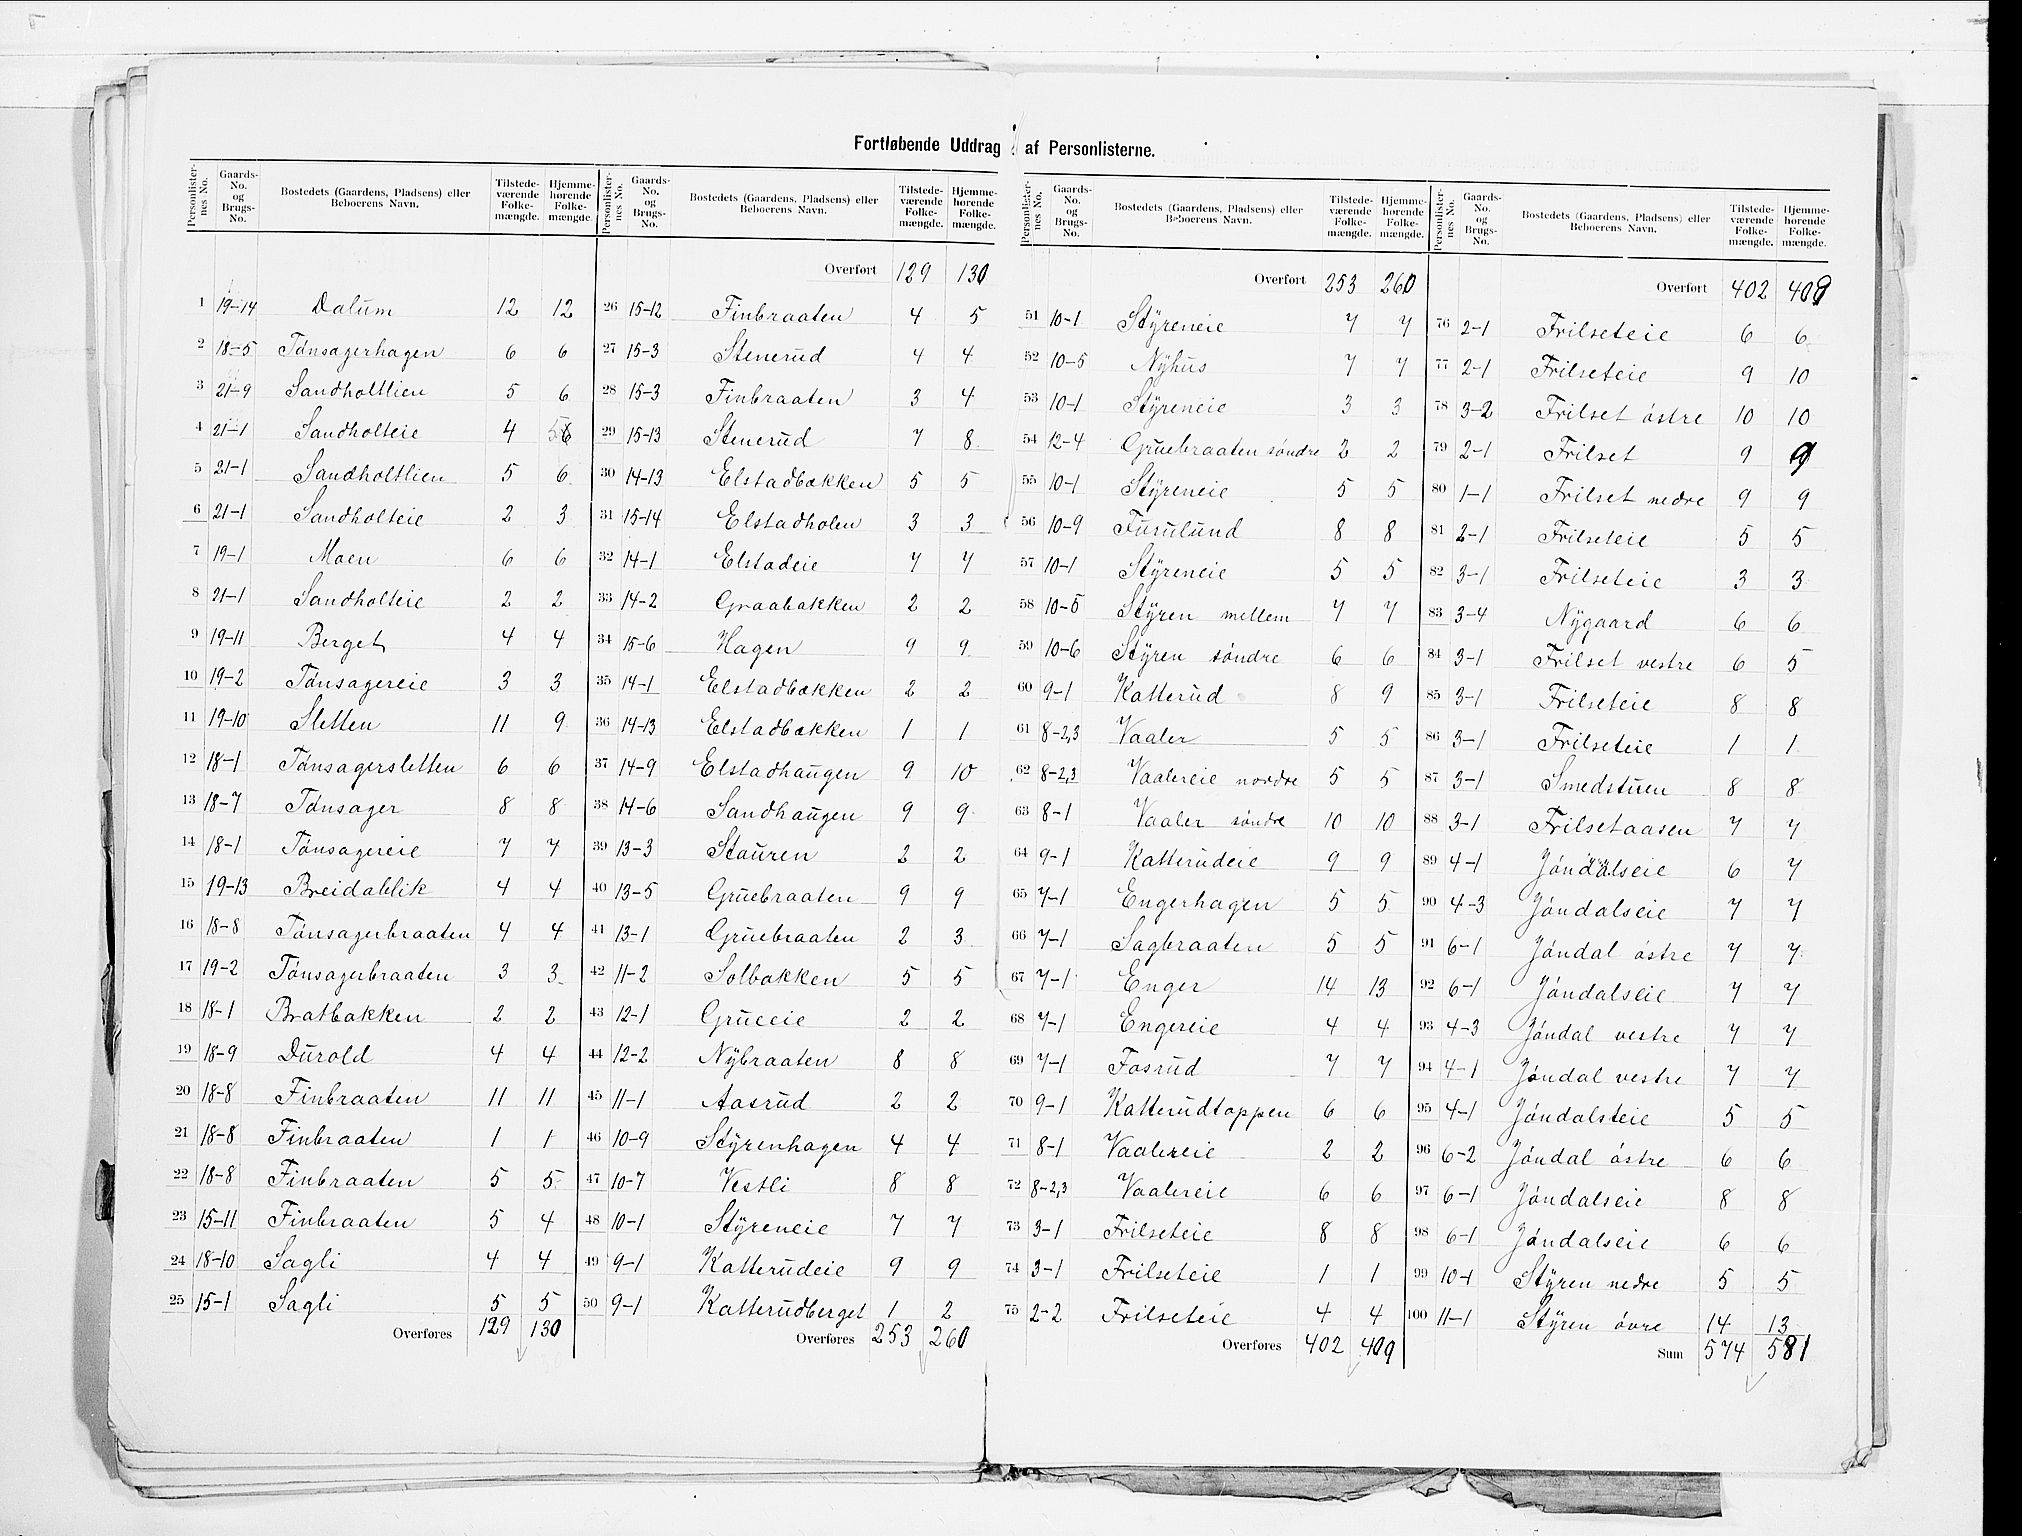 Fortløbende Uddrag af Personlisterne.
Personlister-nes No. Gaards-No. og Brugs-No. Bostedets (Gaardens, Pladsens) eller Beboerens Navn. Tilstede-værende Folke-mængde. Hjemme-hørende Folke-mængde.
1 19-14 Dalum 12 12
2 18-5 Tønsagerhagen 6 6
3 21-9 Sandholtlien 5 6
4 21-1 Sandholteie 4 6
5 21-1 Sandholtlien 5 6
6 21-1 Sandholteie 2 3
7 19-1 Moen 6 6
8 21-1 Sandholteie 2 2
9 19-11 Berget 4 4
10 19-2 Tønsagereie 3 3
11 19-10 Sletten 11 9
12 18-1 Tønsagersletten 6 6
13 18-7 Tønsager 8 8
14 18-1 Tønsagereie 7 7
15 19-13 Breidablik 4 4
16 18-8 Tønsagerbraaten 4 4
17 19-2 Tønsagerbraaten 3 3
18 18-1 Bratbakken 2 2
19 18-9 Durold 4 4
20 18-8 Finbraaten 11 11
21 18-8 Finbraaten 1 1
22 18-8 Finbraaten 5 5
23 15-11 Finbraaten 5 4
24 18-10 Sagli 4 4
25 15-1 Sagli 5 5
Overføres 129 130
Personlister-nes No. Gaards-No. og Brugs-No. Bostedets (Gaardens, Pladsens) eller Beboerens Navn. Tilstede-værende Folke-mængde. Hjemme-hørende Folke-mængde.
Overført 129 130
26 15-12 Finbraaten 4 5
27 15-3 Stenerud 4 4
28 15-3 Finbraaten 3 4
29 15-13 Stenerud 7 8
30 14-13 Elstadbakken 5 5
31 15-14 Elstadholen 3 3
32 14-1 Elstadeie 7 7
33 14-2 Graabakken 2 2
34 15-6 Hagen 9 9
35 14-1 Elstadbakken 2 2
36 14-13 Elstadbakken 1 1
37 14-9 Elstadhaugen 9 10
38 14-6 Sandhaugen 9 9
39 13-3 Stauren 2 2
40 13-5 Gruebraaten 9 9
41 13-1 Gruebraaten 2 3
42 11-2 Solbakken 5 5
43 12-1 Grueeie 2 2
44 12-2 Nybraaten 8 8
45 11-1 Aasrud 2 2
46 10-9 Styrenhagen 4 4
47 10-7 Vestli 8 8
48 10-1 Styreneie 7 7
49 9-1 Katterudeie 9 9
50 9-1 Katterudberget 1 2
Overføres 253 260
Personlister-nes No. Gaards-No. og Brugs-No. Bostedets (Gaardens, Pladsens) eller Beboerens Navn. Tilstede-værende Folke-mængde. Hjemme-hørende Folke-mængde.
Overført 253 260
51 10-1 Styreneie 7 7
52 10-5 Nyhus 7 7
53 10-1 Styreneie 3 3
54 12-4 Gruebraaten søndre 2 2
55 10-1 Styreneie 5 5
56 10-9 Furulund 8 8
57 10-1 Styreneie 5 5
58 10-5 Styren mellem 7 7
59 10-6 Styren søndre 6 6
60 9-1 Katterud 8 9
61 8-2,3 Vaaler 5 5
62 8-2,3 Vaalereie nordre 5 5
63 8-1 Vaaler søndre 10 10
64 9-1 Katterudeie 9 9
65 7-1 Engerhagen 5 5
66 7-1 Sagbraaten 5 5
67 7-1 Enger 14 13
68 7-1 Engereie 4 4
69 7-1 Fosrud 7 7
70 9-1 Katterudtoppen 6 6
71 8-1 Vaalereie 2 2
72 8-2,3 Vaalereie 6 6
73 3-1 Frilseteie 8 8
74 3-1 Frilseteie 1 1
75 2-2 Frilseteie 4 4
Overføres 402 409
Personlister-nes No. Gaards-No. og Brugs-No. Bostedets (Gaardens, Pladsens) eller Beboerens Navn. Tilstede-værende Folke-mængde. Hjemme-hørende Folke-mængde.
Overført 402 409
76 2-1 Frilseteie 6 6
77 2-1 Frilseteie 9 10
78 3-2 Frilset østre 10 10
79 2-1 Frilset 9 9
80 1-1 Frilset nedre 9 9
81 2-1 Frilseteie 5 5
82 3-1 Frilseteie 3 3
83 3-4 Nygaard 6 6
84 3-1 Frilset vestre 6 5
85 3-1 Frilseteie 8 8
86 3-1 Frilseteie 1 1
87 3-1 Smedstuen 8 8
88 3-1 Frilsetaasen 7 7
89 4-1 Jøndalseie 6 7
90 4-3 Jøndalseie 7 7
91 6-1 Jøndal østre 7 7
92 6-1 Jøndalseie 7 7
93 4-3 Jøndal vestre 7 7
94 4-1 Jøndal vestre 7 7
95 4-1 Jøndalsteie 5 5
96 6-2 Jøndal østre 6 6
97 6-1 Jøndalseie 8 8
98 6-1 Jøndalseie 6 6
99 10-1 Styren nedre 5 5
100 11-1 Styren øvre 14 13
Sum 574 581